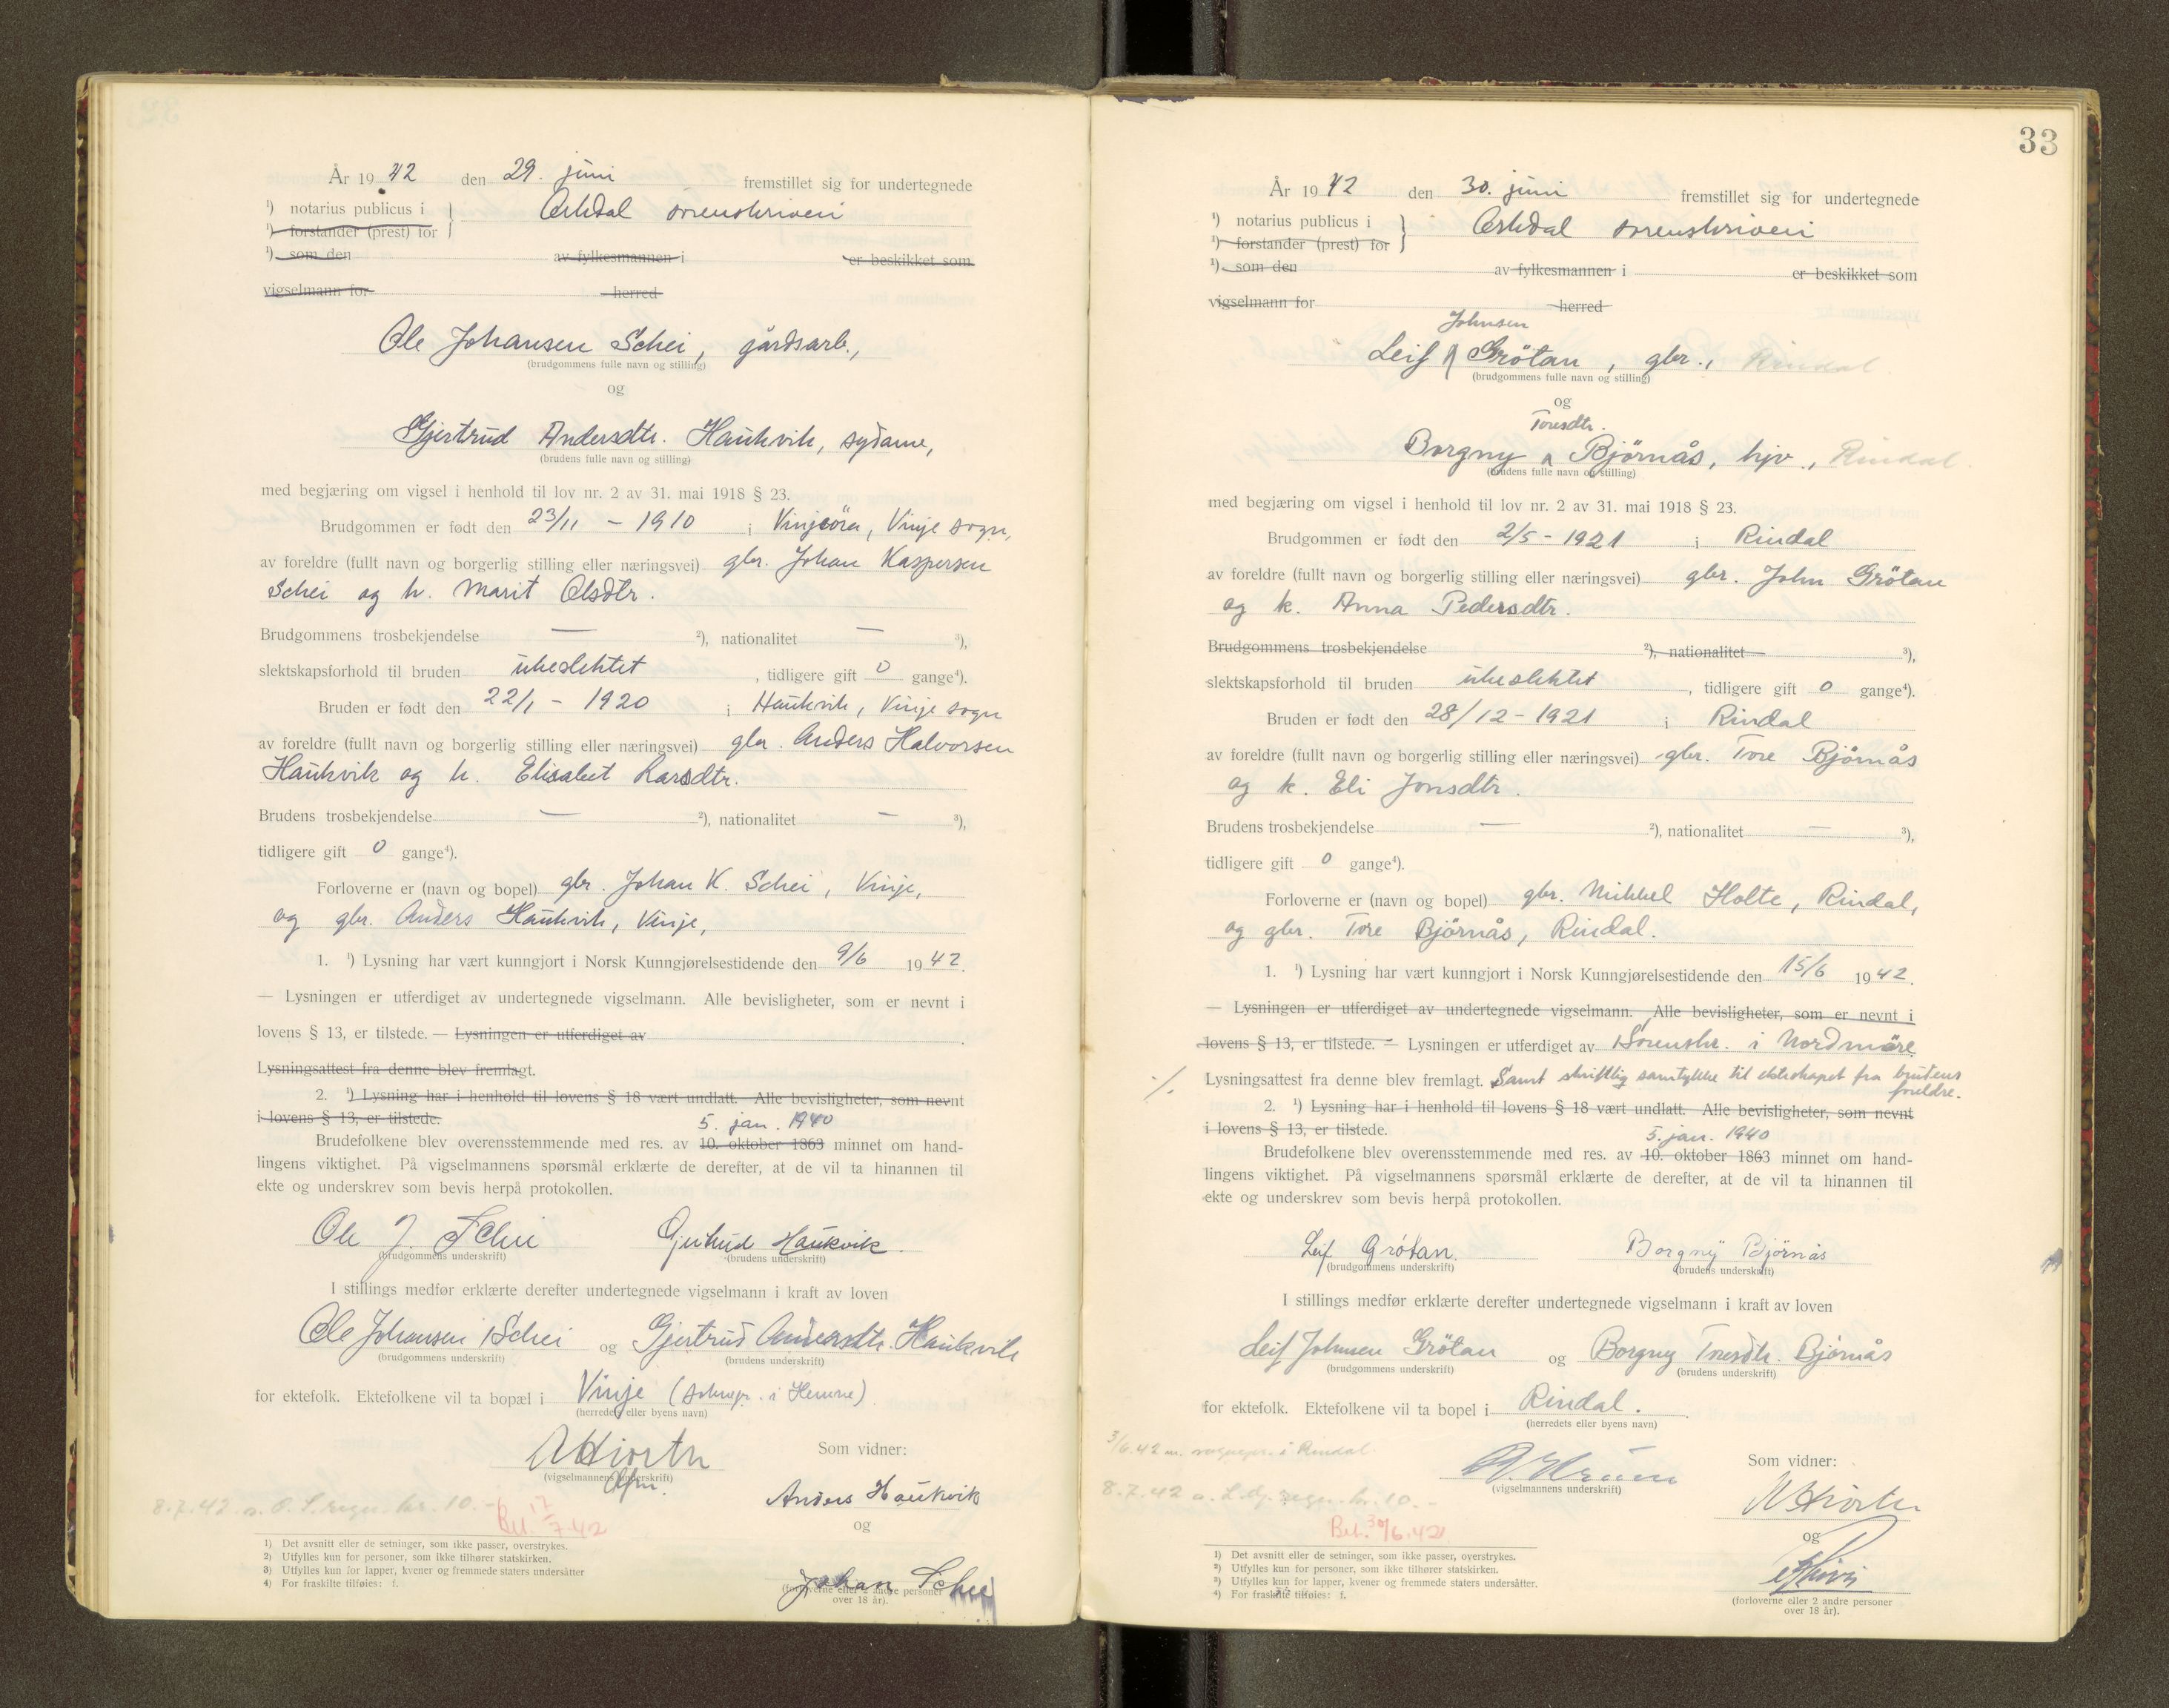 År 19 42 den 29. juni fremstillet sig for undertegnede
¹) notarius publicus i } Orkdal sorenskriveri
¹) forstander (prest) for
¹) som den av fylkesmannen i er beskikket som
vigselmann for herred
Ole Johansen Schei, gårdsarb.,
(brudgommens fulle navn og stilling)
og
Gjertrud Andersdtr. Haukvik, sydame,
(brudens fulle navn og stilling)
med begjæring om vigsel i henhold til lov nr. 2 av 31. mai 1918 § 23.
Brudgommen er født den 23/11 - 1910 i Vinjeöra, Vinje sogn,
av foreldre (fullt navn og borgerlig stilling eller næringsvei) gbr. Johan Kaspersen
Schei og h. Marit Olsdtr.
Brudgommens trosbekjendelse — ²), nationalitet — ³),
slektskapsforhold til bruden ubeslektet, tidligere gift 0 gange⁴).
Bruden er født den 22/1 - 1920 i Haukvik, Vinje sogn
av foreldre (fullt navn og borgerlig stilling eller næringsvei) gbr. Anders Halvorsen
Haukvik og h. Elisabet Larsdtr.
Brudens trosbekjendelse — ²), nationalitet — ³),
tidligere gift 0 gange⁴).
Forloverne er (navn og bopel) gbr. Johan K. Schei, Vinje,
og gbr. Anders Haukvik, Vinje,
1. ¹) Lysning har vært kunngjort i Norsk Kunngjørelsestidende den 9/6 19 42.
— Lysningen er utferdiget av undertegnede vigselmann. Alle bevisligheter, som er nevnt i
lovens § 13, er tilstede. — Lysningen er utferdiget av .
Lysningsattest fra denne blev fremlagt.
2. ¹) Lysning har i henhold til lovens § 18 vært undlatt. Alle bevisligheter, som nevnt
i lovens § 13, er tilstede.
5. jan. 1940
Brudefolkene blev overensstemmende med res. av 10. oktober 1863 minnet om hand-
lingens viktighet. På vigselmannens spørsmål erklærte de derefter, at de vil ta hinannen til
ekte og underskrev som bevis herpå protokollen.
Ole J. Schei Gjertrud Haukvik.
(brudgommens underskrift) (brudens underskrift)
I stillings medfør erklærte derefter undertegnede vigselmann i kraft av loven
Ole Johansen Schei og Gjertrud Andersdtr. Haukvik
(brudgommens underskrift) (brudens underskrift)
for ektefolk. Ektefolkene vil ta bopæl i Vinje (i Hemne)
(herredets eller byens navn)
Som vidner:
(vigselmannens underskrift)
Anders Haukvik
8.7.42 10.-
Bet. 17/7.42
og
Johan Schei
(forloverne eller 2 andre personer
over 18 år).
1) Det avsnitt eller de setninger, som ikke passer, overstrykes.
2) Utfylles kun for personer, som ikke tilhører statskirken.
3) Utfylles kun for lapper, kvener og fremmede staters undersåtter
4) For fraskilte tilføies: f.
33
År 19 42 den 30. juni fremstillet sig for undertegnede
¹) notarius publicus i } Orkdal sorenskriveri
¹) forstander (prest) for
¹) som den av fylkesmannen i er beskikket som
vigselmann for herred
Johnsen
Leif Grötan, gbr., Rindal
(brudgommens fulle navn og stilling)
og
Toresdtr.
Borgny Björnås, hjv., Rindal
(brudens fulle navn og stilling)
med begjæring om vigsel i henhold til lov nr. 2 av 31. mai 1918 § 23.
Brudgommen er født den 2/5 - 1921 i Rindal
av foreldre (fullt navn og borgerlig stilling eller næringsvei) gbr. John Grötan
og k. Anna Pedersdtr.
Brudgommens trosbekjendelse ²), nationalitet ³),
slektskapsforhold til bruden ubeslektet, tidligere gift 0 gange⁴).
Bruden er født den 28/12 - 1921 i Rindal
av foreldre (fullt navn og borgerlig stilling eller næringsvei) gbr. Tore Björnås
og k. Eli Jonsdtr.
Brudens trosbekjendelse — ²), nationalitet — ³),
tidligere gift 0 gange⁴).
Forloverne er (navn og bopel) gbr. Mikkel Holte, Rindal,
og gbr. Tore Björnås, Rindal.
1. ¹) Lysning har vært kunngjort i Norsk Kunngjørelsestidende den 15/6 19 42.
— Lysningen er utferdiget av undertegnede vigselmann. Alle bevisligheter, som er nevnt i
lovens § 13, er tilstede. — Lysningen er utferdiget av Sorenskr. i Nordmöre.
Lysningsattest fra denne blev fremlagt. Samt skriftlig samtykke til ekteskapet fra brudens
foreldre.
2. ¹) Lysning har i henhold til lovens § 18 vært undlatt. Alle bevisligheter, som nevnt
i lovens § 13, er tilstede.
5. jan. 1940
Brudefolkene blev overensstemmende med res. av 10. oktober 1863 minnet om hand-
lingens viktighet. På vigselmannens spørsmål erklærte de derefter, at de vil ta hinannen til
ekte og underskrev som bevis herpå protokollen.
Leif Grötan. Borgny Bjørnås
(brudgommens underskrift) (brudens underskrift)
I stillings medfør erklærte derefter undertegnede vigselmann i kraft av loven
Leif Johnsen Grötan og Borgny Toresdtr. Björnås
(brudgommens underskrift) (brudens underskrift)
for ektefolk. Ektefolkene vil ta bopel i Rindal.
(herredets eller byens navn)
3/6.42 m. sognepr. i Rindal
Som vidner:
(vigselmannens underskrift)
8.7.42 10.-
Bet. 30/6.42
og
(forloverne eller 2 andre personer
over 18 år).
1) Det avsnitt eller de setninger, som ikke passer, overstrykes.
2) Utfylles kun for personer, som ikke tilhører statskirken.
3) Utfylles kun for lapper, kvener og fremmede staters undersåtter.
4) For fraskilte tilføies: f.